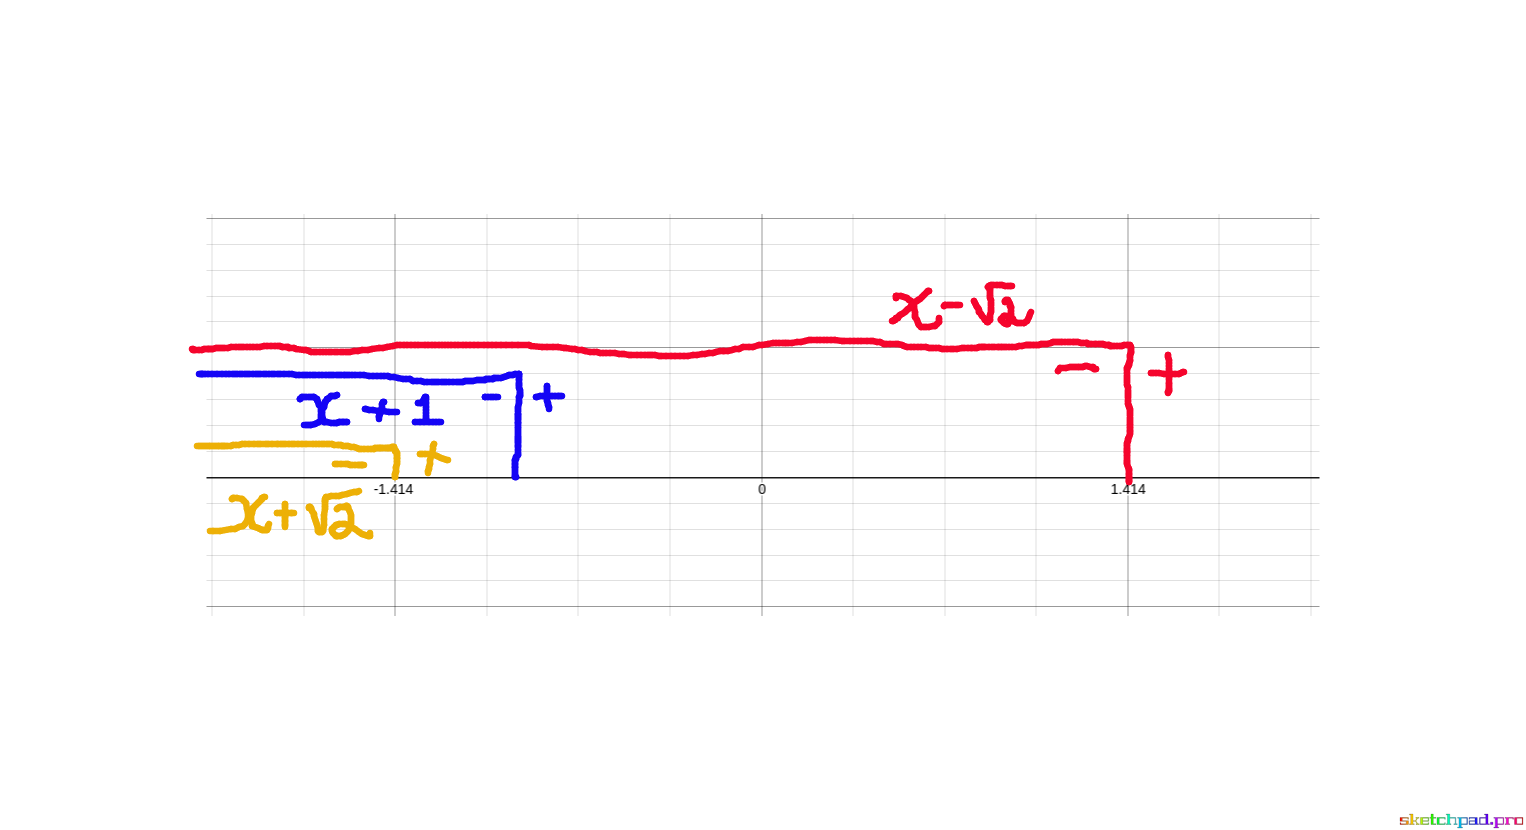 x - √2
- +
x + 1 - +
- +
-1.414 0 1.414
x + √2
sketchpad.pro